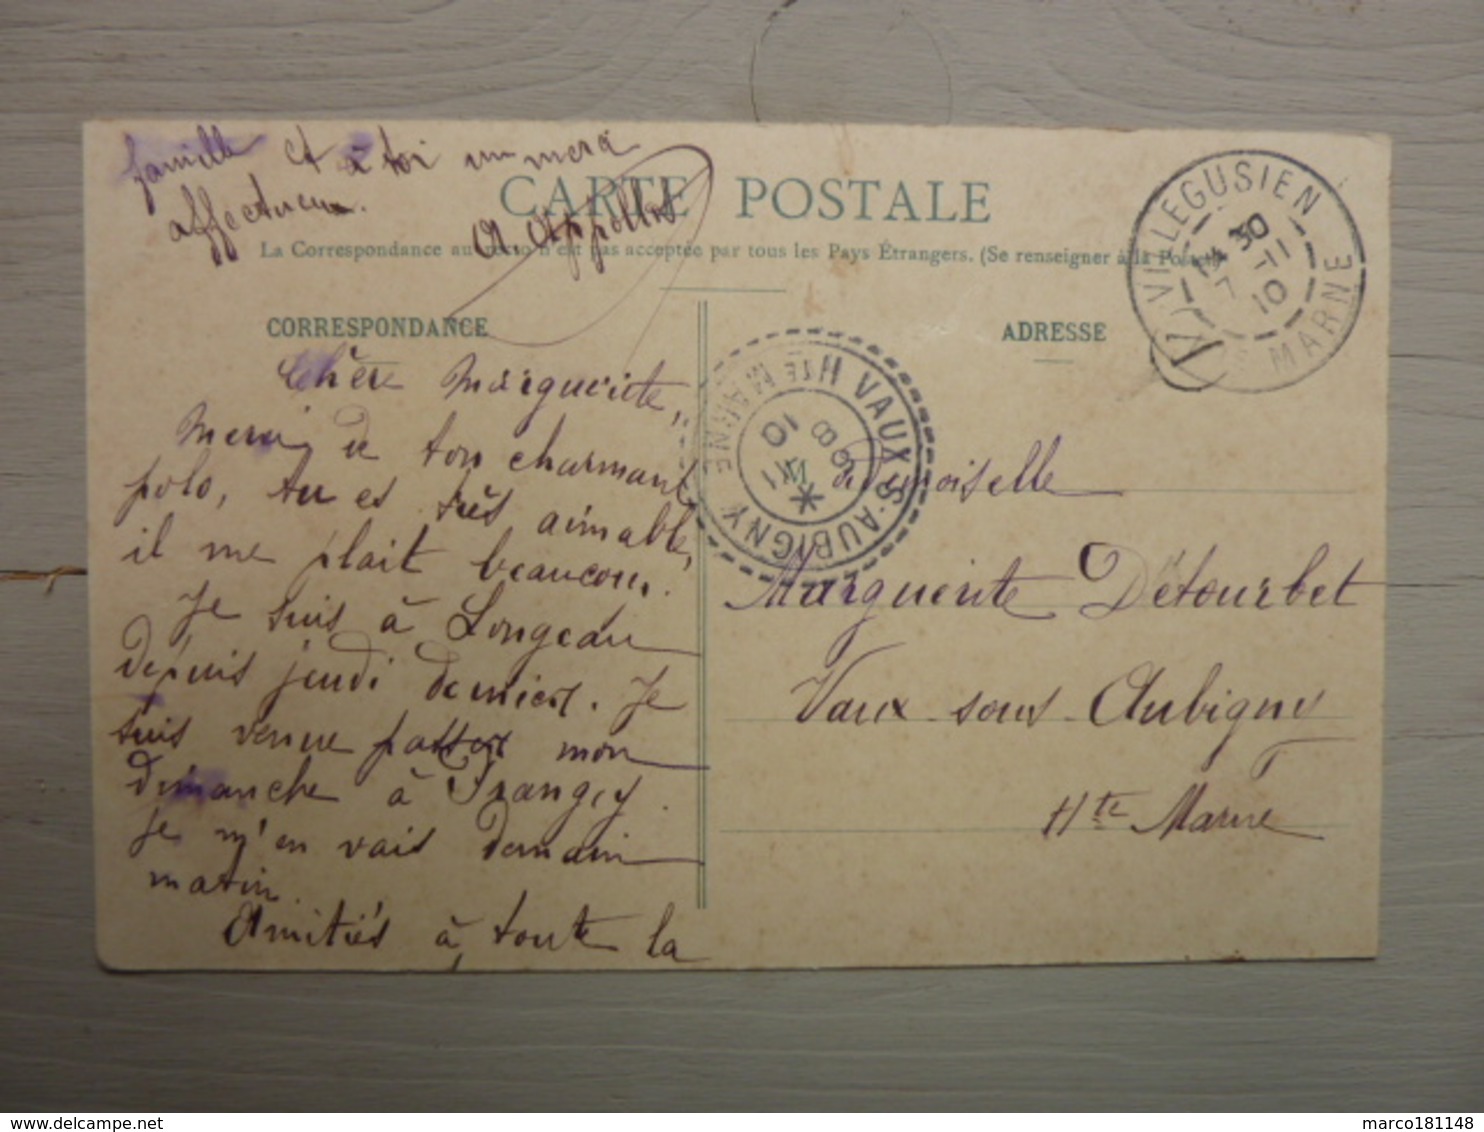 famille et à toi un merci
affectueux.
A Appollot
CARTE POSTALE
La Correspondance au recto n'est pas acceptée par tous les Pays Étrangers. (Se renseigner à la Poste)
CORRESPONDANCE
Chère Marguerite,
Merci de ton charmant
polo, tu es très aimable,
il me plait beaucoup.
Je suis à Longeau
depuis jeudi dernier. Je
suis venue passer mon
dimanche à Prangey.
Je m'en vais demain
matin
Amitiés à toute la
ADRESSE
VILLEGUSIEN
14 30
7 -11
10
MARNE
VAUX S. AUBIGNY
HTE MARNE
8
10
Demoiselle
Marguerite Détourbet
Vaux-sous-Aubigny
Hte Marne
marco181148